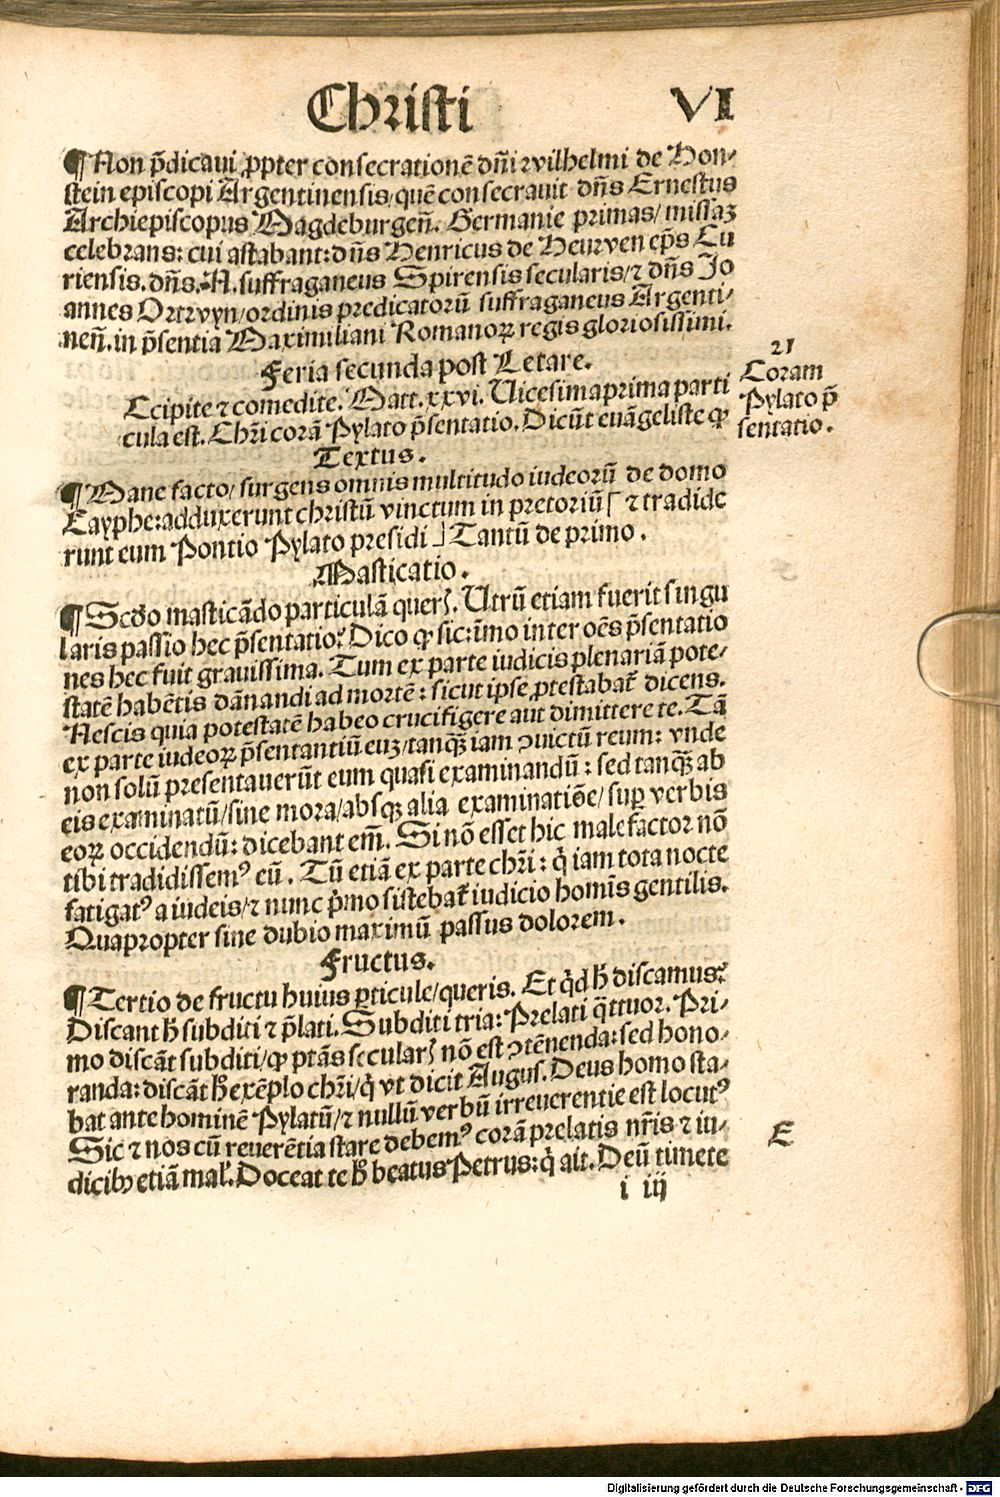 Christi VI
¶ Non p̄dicaui ꝓpter consecrationē dn̄i wilhelmi de Hon⸗
stein episcopi Argentinensis/quē consecrauit dn̄s Ernestus
Archiepiscopus Magdeburgen̄. Germanie primas/missaꝫ
celebrans: cui astabant: dn̄s Henricus de Heurven ep̄s Cu
riensis. dn̄s. N. suffraganeus Spirensis secularis/⁊ dn̄s Jo
annes Ortwyn/ordinis predicatorū suffraganeus Argenti⸗
nen̄. in p̄sentia Maximiliani Romanoꝝ regis gloriosissimi.
Feria secunda post Letare.
Ccipite ⁊ comedite. Matt. xxvi. Uicesimaprima parti
cula est. Chr̄i corā Pylato p̄sentatio. Dicūt euāgeliste ꝙ
21
Coram
Pylato p̄
sentatio.
Textus.
¶ Mane facto/ surgens omnis multitudo iudeorū de domo
Cayphe: adduxerunt christū vinctum in pretoriū⌈ ⁊ tradide
runt eum Pontio Pylato presidi ⌋ Tantū de primo.
Masticatio.
¶ Scd̄o masticādo particulā querꝭ. Utrū etiam fuerit singu
laris passio hec p̄sentatio? Dico ꝙ sic: īmo inter oēs p̄sentatio
nes hec fuit grauissima. Tum ex parte iudicis plenariā pote⸗
statē habētis dānandi ad mortē: sicut ipse ꝓtestabat̄ dicens.
Nescis quia potestatē habeo crucifigere aut dimittere te. Tū
ex parte iudeoꝝ p̄sentantiū euꝫ/tanqꝫ iam ꝯuictū reum: vnde
non solū presentauerūt eum quasi examinandū: sed tanqꝫ ab
eis examinatū/sine mora/absqꝫ alia examinatiōe/suꝑ verbis
eorꝝ occidendū: dicebant em̄. Si nō esset hic malefactor nō
tibi tradidissemꝰ eū. Tū etiā ex parte chr̄i: q̇ iam tota nocte
fatigatꝰ a iudeis/⁊ nunc p̄mo sistebat̄ iudicio homīs gentilis.
Quapropter sine dubio maximū passus dolorem.
Fructus.
¶ Tertio de fructu huius ꝑticule/queris. Et q̇d h̄ discamus?
Discant h̄ subditi ⁊ p̄lati. Subditi tria: Prelati q̄ttuor. Pri⸗
mo discāt subditi/ꝙ ptās secularꝭ nō est ꝯtēnenda: sed hono⸗
randa: discāt h̄ exēplo chr̄i/q̇ vt dicit Augus. Deus homo sta⸗
bat ante hominē Pylatū/⁊ nullū verbū irreuerentie est locutꝰ
Sic ⁊ nos cū reuerētia stare debemꝰ corā prelatis nr̄is ⁊ iu⸗
dicibꝫ etiā mal̓. Doceat te h̄ beatus Petrus: q̇ ait. Deū timete
E
i iij
Digitalisierung gefördert durch die Deutsche Forschungsgemeinschaft - DFG